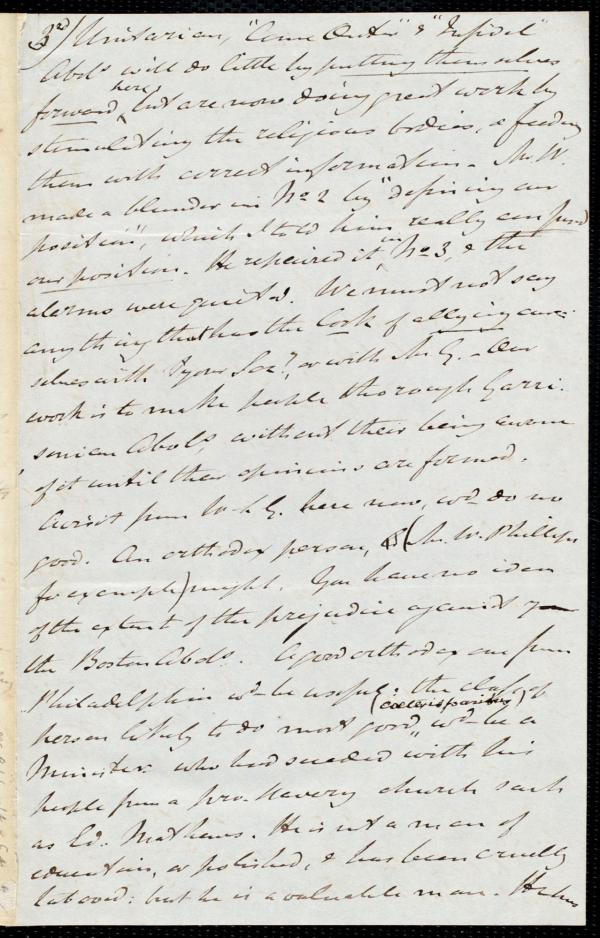 3rd) Unitarian, "Come Outer" & "Infidel"
Abols will do little by putting themselves
forward here, but are now doing great work by
stimulating the religious bodies, & feeding
them with correct information. Mr. W.
made a blunder in No 2 by "defining our
position", which I told him really confused
our position. He repaired it in No 3, & the
alarms were quieted. We must not say
anything that has the look of allying our-
selves with "your Soc.", or with Mr. G. - Our
work is to make people thorough Garri-
sonian Abols, without their being aware
of it until their opinions are formed.
A visit from W. L. G. here now, wd do no
good. An orthodox person, (Mr. W. Phillips
for example) might. You have no idea
of the extent of the prejudice against
the Boston Abols. A good orthodox one from
Philadelphia wd be useful: the class of
person likely to do most good, (cæteris paribus) wd be a
Minister who had seceded with his
people from a pro-slavery church such
as Ed. Mathews. He is not a man of
education, or polished, & has been cruelly
tabooed: but he is a valuable man. He has